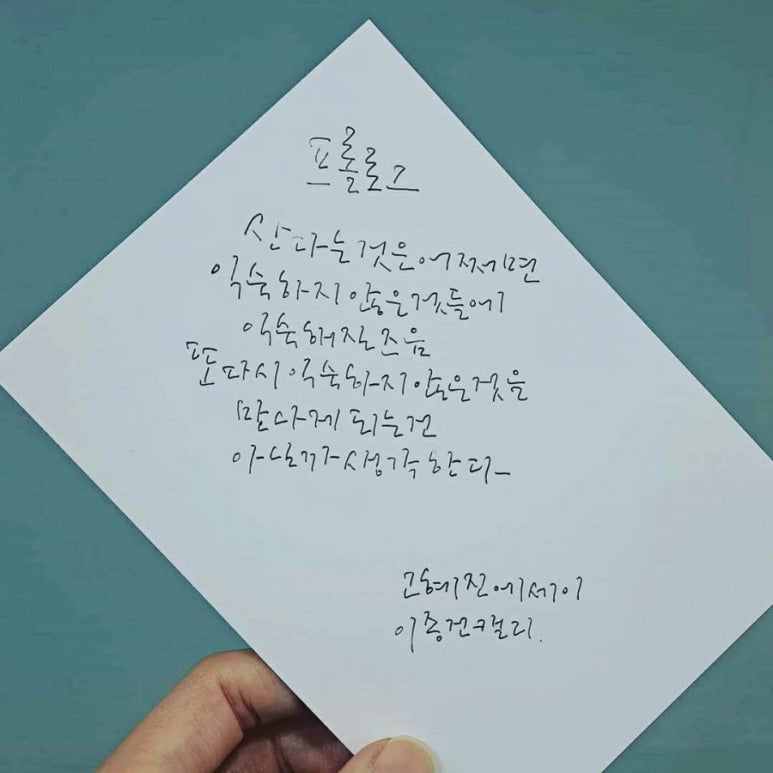 프롤로그
산다는것은어쩌면
익숙하지않은것들에
익숙해질즈음
또다시익숙하지않은것을
만나게되는건
아닐까생각한다
고혜진에세이
이종건캘리.